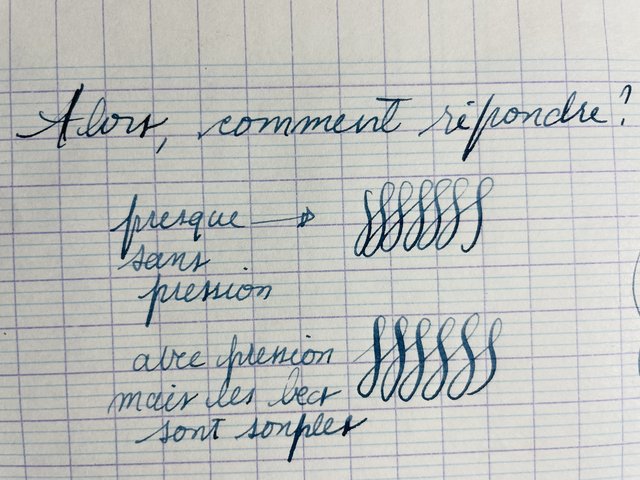 Alors, comment répondre?
presque
sans
pression
avec pression
mais les becs
sont souples